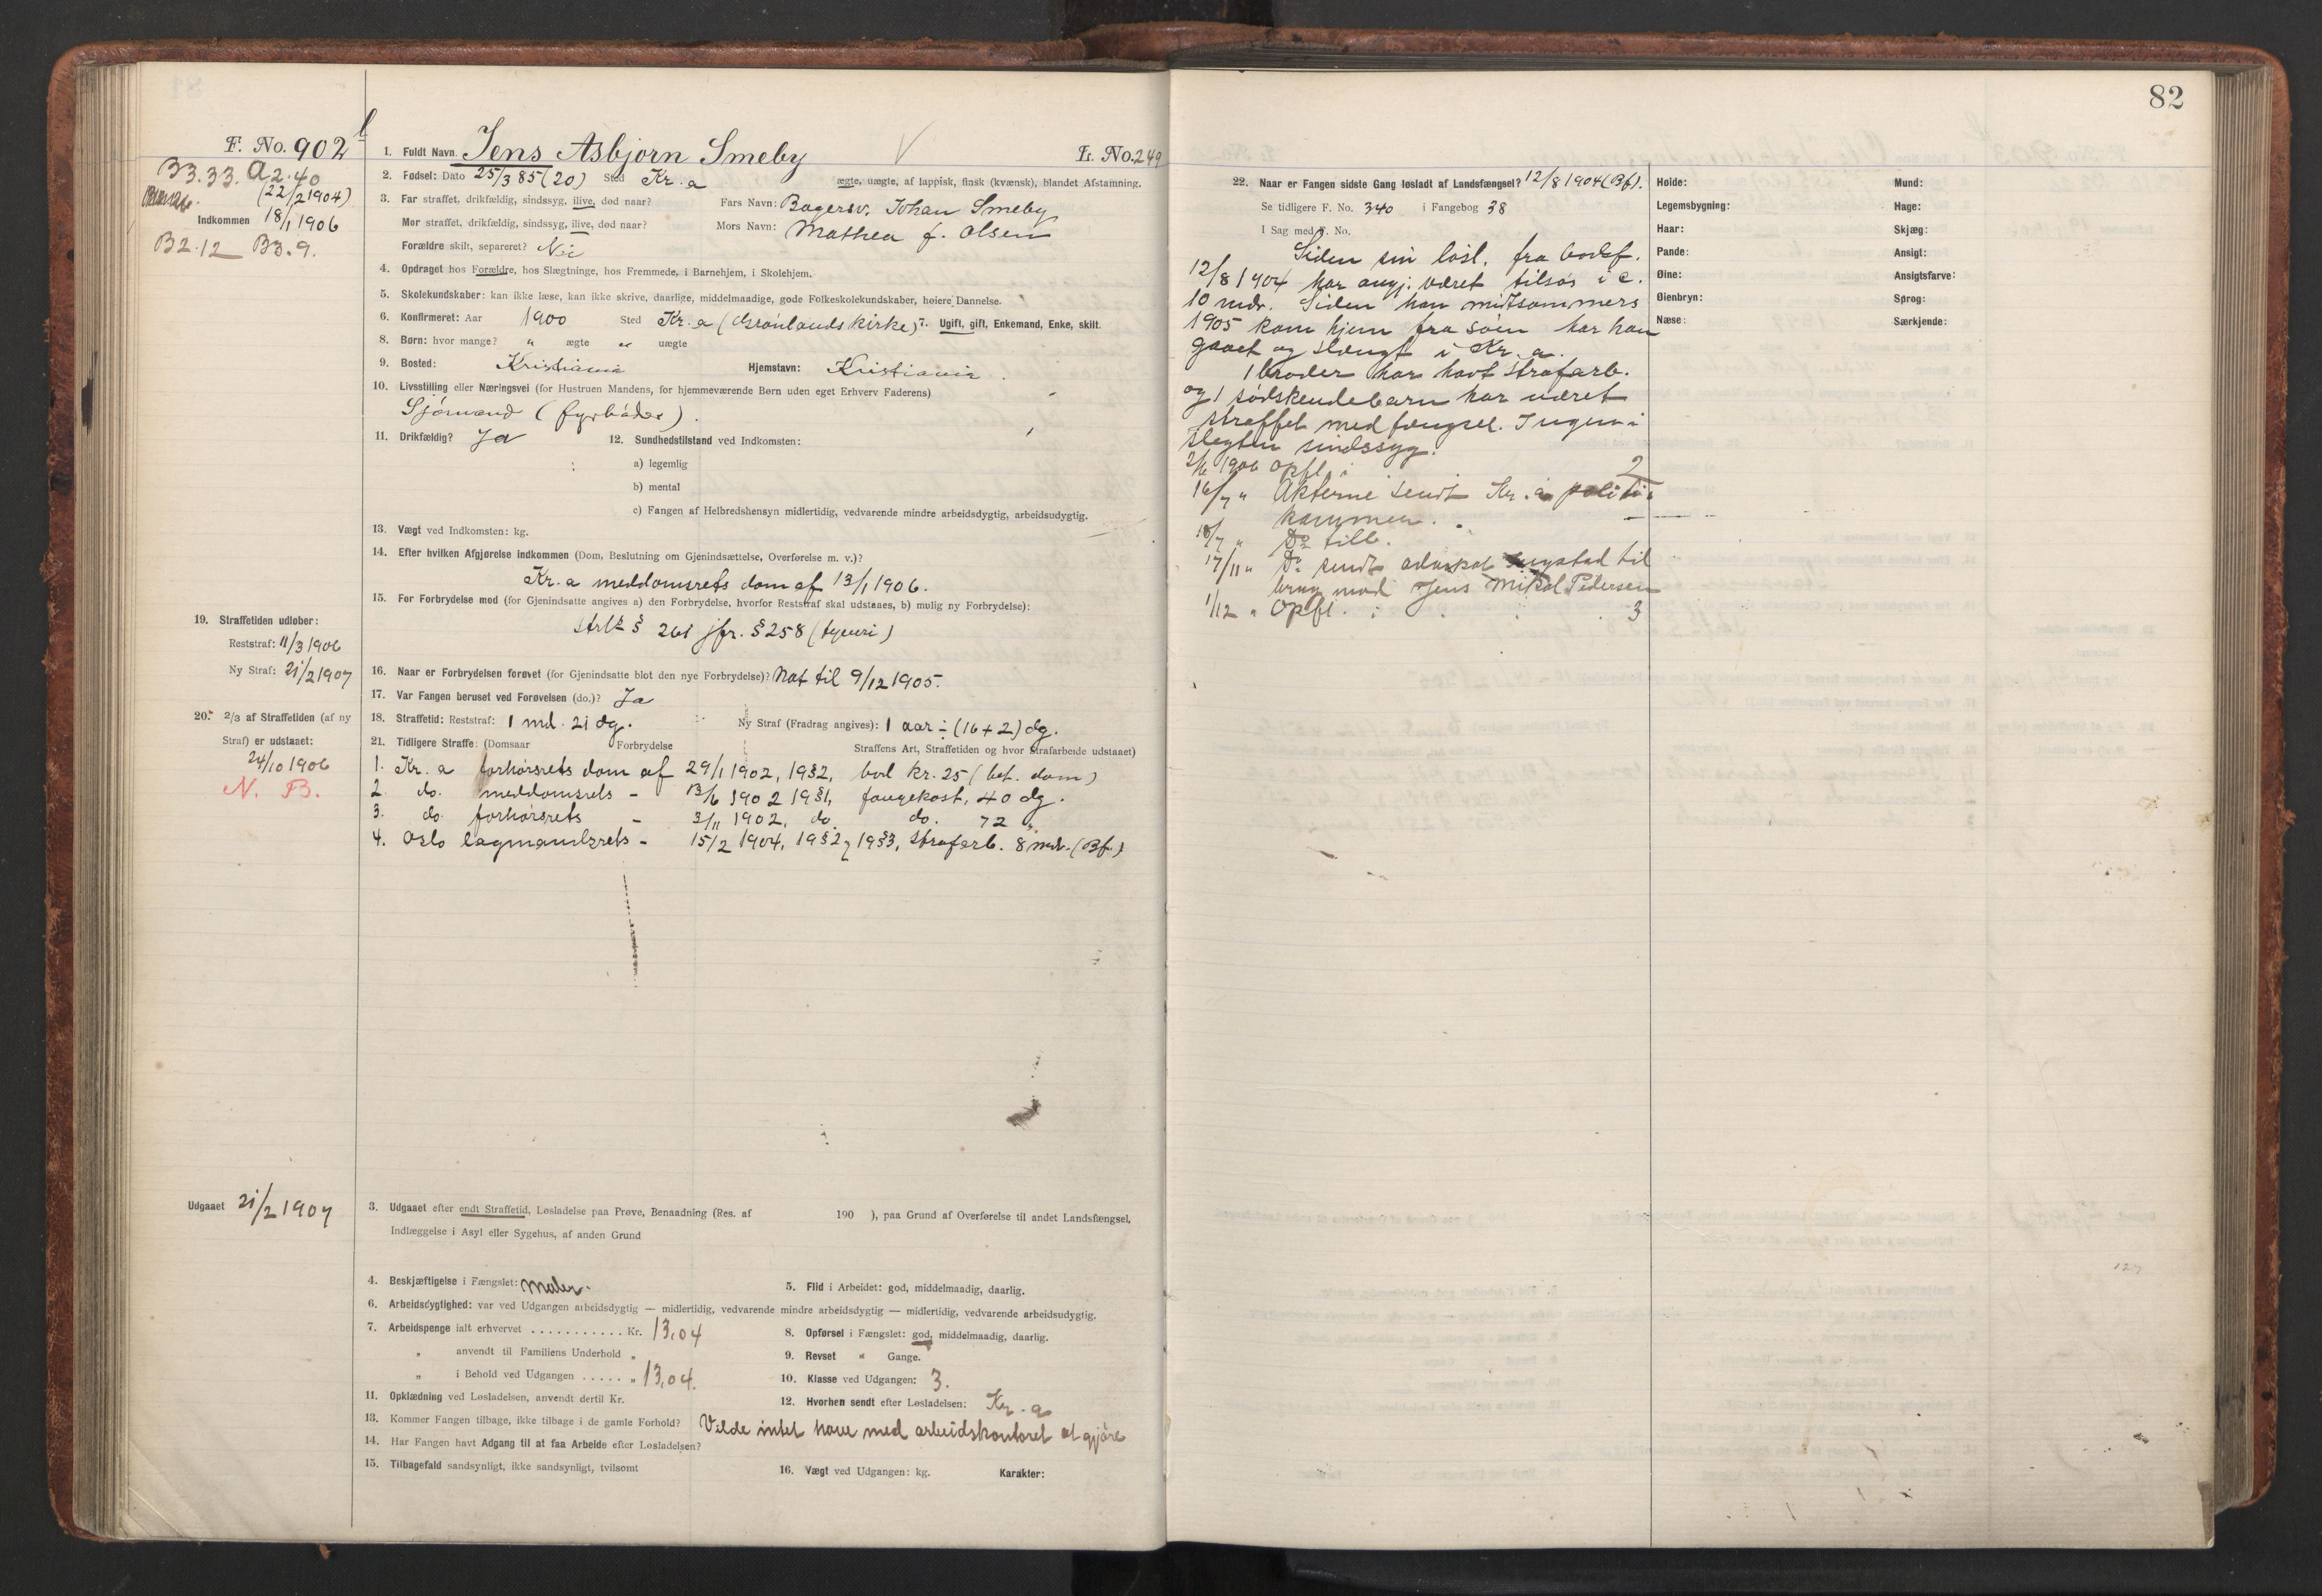 F. No. 902
B3.33. A2.40
(22/2 1904)
Indkommen 18/1 1906
B2.12 B3.9.
1. Fuldt Navn. Jens Asbjørn Smeby L. No. 249
2. Fødsel: Dato 25/3 85 (20) Sted Kr.a ægte, uægte, af lappisk, finsk (kvænsk), blandet Afstamning.
3. Far straffet, drikfældig, sindssyg, ilive, død naar? Fars Navn: Bagersv. Johan Smeby
Mor straffet, drikfældig, sindssyg, ilive, død naar? Mors Navn: Mathea f. Olsen
Forældre skilt, separeret? Nei
4. Opdraget hos Forældre, hos Slægtninge, hos Fremmede, i Barnehjem, i Skolehjem.
5. Skolekundskaber: kan ikke læse, kan ikke skrive, daarlige, middelmaadige, gode Folkeskolekundskaber, høiere Dannelse.
6. Konfirmeret: Aar 1900 Sted Kr.a (Grønlands kirke) 7. Ugift, gift, Enkemand, Enke, skilt.
8. Børn: hvor mange? " ægte " uægte
9. Bosted: Kristiania Hjemstavn: Kristiania.
10. Livsstilling eller Næringsvei (for Hustruen Mandens, for hjemmeværende Børn uden eget Erhverv Faderens)
Sjømand (fyrbøder).
11. Drikfældig? Ja 12. Sundhedstilstand ved Indkomsten:
a) legemlig
b) mental
c) Fangen af Helbredshensyn midlertidig, vedvarende mindre arbeidsdygtig, arbeidsudygtig.
13. Vægt ved Indkomsten: kg.
14. Efter hvilken Afgjørelse indkommen (Dom, Beslutning om Gjenindsættelse, Overførelse m. v.)?
Kr.a meddomsrets dom af 13/1 1906.
15. For Forbrydelse mod (for Gjenindsatte angives a) den Forbrydelse, hvorfor Reststraf skal udstaaes, b) mulig ny Forbrydelse):
Strl. § 261 jfr. § 258 (tyveri)
19. Straffetiden udløber:
Reststraf: 11/3 1906
Ny Straf: 21/2 1907
16. Naar er Forbrydelsen forøvet (for Gjenindsatte blot den nye Forbrydelse)? Nat til 9/12 1905.
17. Var Fangen beruset ved Forøvelsen (do.)? Ja
18. Straffetid: Reststraf: 1 md. 21 dg. Ny Straf (Fradrag angives): 1 aar ÷ (16+2) dg.
20. 2/3 af Straffetiden (af ny
Straf) er udstaaet:
24/10 1906
N. B.
21. Tidligere Straffe: (Domsaar Forbrydelse Straffens Art, Straffetiden og hvor Strafarbeide udstaaet)
1. Kr.a forhørsrets dom af 29/1 1902, 19 § 2, bod kr. 25 (bet. dom)
2. do. meddomsrets - 13/6 1902 19 § 1, fangekost, 40 dg.
3. do. forhørsrets - 3/11 1902, do. do. 72 "
4. Oslo lagmandsrets - 15/2 1904, 19 § 2 & 19 § 3, strafarb. 8 mdr. (Bf.)
Udgaaet 21/2 1907
3. Udgaaet efter endt Straffetid, Løsladelse paa Prøve, Benaadning (Res. af 190 ), paa Grund af Overførelse til andet Landsfængsel,
Indlæggelse i Asyl eller Sygehus, af anden Grund
4. Beskjæftigelse i Fængslet: Maler. 5. Flid i Arbeidet: god, middelmaadig, daarlig.
6. Arbeidsdygtighed: var ved Udgangen arbeidsdygtig — midlertidig, vedvarende mindre arbeidsdygtig — midlertidig, vedvarende arbeidsudygtig.
7. Arbeidspenge ialt erhvervet ........... Kr. 13,04 8. Opførsel i Fængslet: god, middelmaadig, daarlig.
" anvendt til Familiens Underhold " 9. Revset " Gange.
" i Behold ved Udgangen ..... " 13,04. 10. Klasse ved Udgangen: 3.
11. Opklædning ved Løsladelsen, anvendt dertil Kr. 12. Hvorhen sendt efter Løsladelsen: Kr.a
13. Kommer Fangen tilbage, ikke tilbage i de gamle Forhold? Vilde intet have med arbeidskontoret at gjøre
14. Har Fangen havt Adgang til at faa Arbeide efter Løsladelsen?
15. Tilbagefald sandsynligt, ikke sandsynligt, tvilsomt 16. Vægt ved Udgangen: kg. Karakter:
82
22. Naar er Fangen sidste Gang løsladt af Landsfængsel? 12/8 1904 (Bf).
Se tidligere F. No. 340 i Fangebog 38
I Sag med F. No.
Siden sin løsl. fra bodsf.
12/8 1904 har angj. været tilsøs i c.
10 mdr. Siden han midtsommers
1905 kom hjem fra søen har han
gaaet og slængt i Kr.a.
1 broder har havt strafarb.
og 1 sødskendebarn har været
straffet med fængsel. Ingen i
slegten sindssyg.
2/6 1906 opfl. i 2
16/7 " Akterne sendt Kr.a politi-
kammer.
18/7 " Do tilb.
17/11 " Do sendt advokat Tungstad til
brug mod Jens Mikal Pedersen
1/12 " Opfl. 3
Høide: Mund:
Legemsbygning: Hage:
Haar: Skjæg:
Pande: Ansigt:
Øine: Ansigtsfarve:
Øienbryn: Sprog:
Næse: Særkjende: